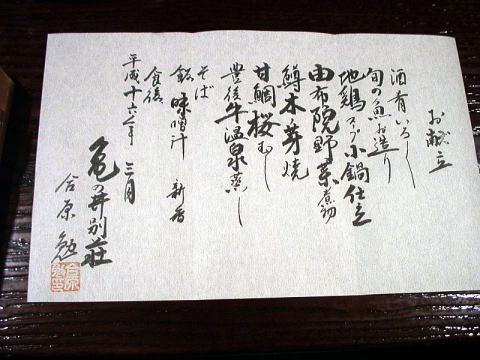 お献立
酒肴いろいろ
旬の魚お造り
地鶏スープ小鍋仕立
由布院野菜煮物
鱒木芽焼
甘鯛桜むし
豊後牛温泉蒸し
そば
飯 味噌汁 新香
食後
平成十六年 三月
亀の井別荘
合原 勉